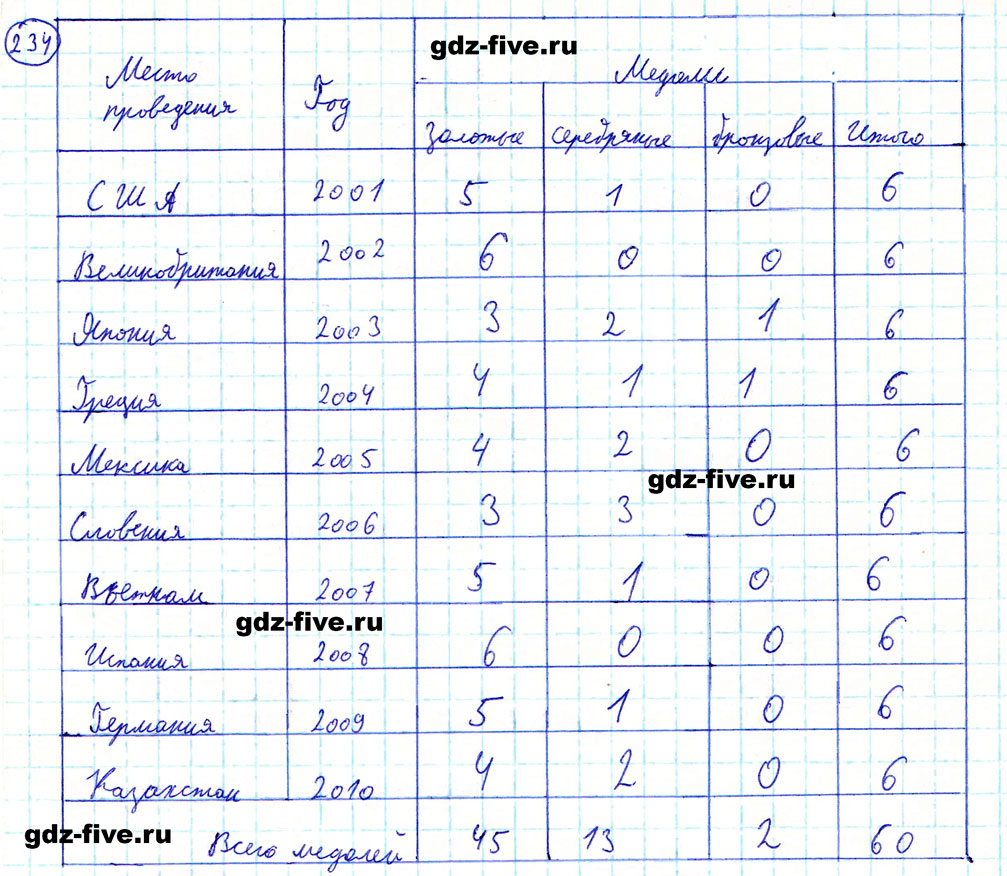 234
gdz-five.ru
Место проведения Год Медали
золотые серебряные бронзовые Итого
США 2001 5 1 0 6
Великобритания 2002 6 0 0 6
Япония 2003 3 2 1 6
Греция 2004 4 1 1 6
Мексика 2005 4 2 0 6
gdz-five.ru
Словения 2006 3 3 0 6
Вьетнам 2007 5 1 0 6
gdz-five.ru
Испания 2008 6 0 0 6
Германия 2009 5 1 0 6
Казахстан 2010 4 2 0 6
gdz-five.ru
Всего медалей 45 13 2 60